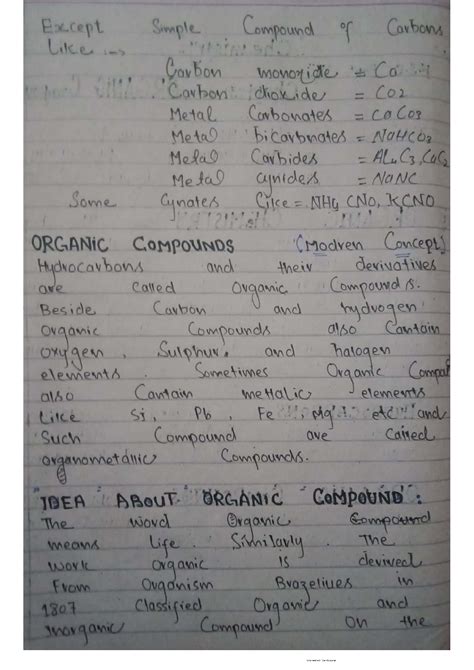 Except Simple Compound of Carbons
Like :->
Carbon monoxide = Co
Carbon dioxide = CO2
Metal Carbonates = CaCO3
Metal bicarbonates = NaHCO3
Metal Carbides = AL4C3, CaC2
Metal cynides = NaNC
Some Cynates Like = NH4 CNO, KCNO
ORGANIC COMPOUNDS (Modren Concept)
Hydrocarbons and their derivatives
are called Organic Compounds.
Beside Carbon and hydrogen
Organic Compounds also Contain
oxygen, Sulphur, and halogen
elements. Sometimes Organic
also Contain metlalic elements
Like Si, Pb, Fe, Mg, etc and
Such Compound are Called
organometallic Compounds.
IDEA ABOUT ORGANIC COMPOUND:
The word Organic Compound
means Life. Similarly. The
work organic is derived
From Organism Brazelius in
1807 Classified Organic and
Inorganic Compound On the